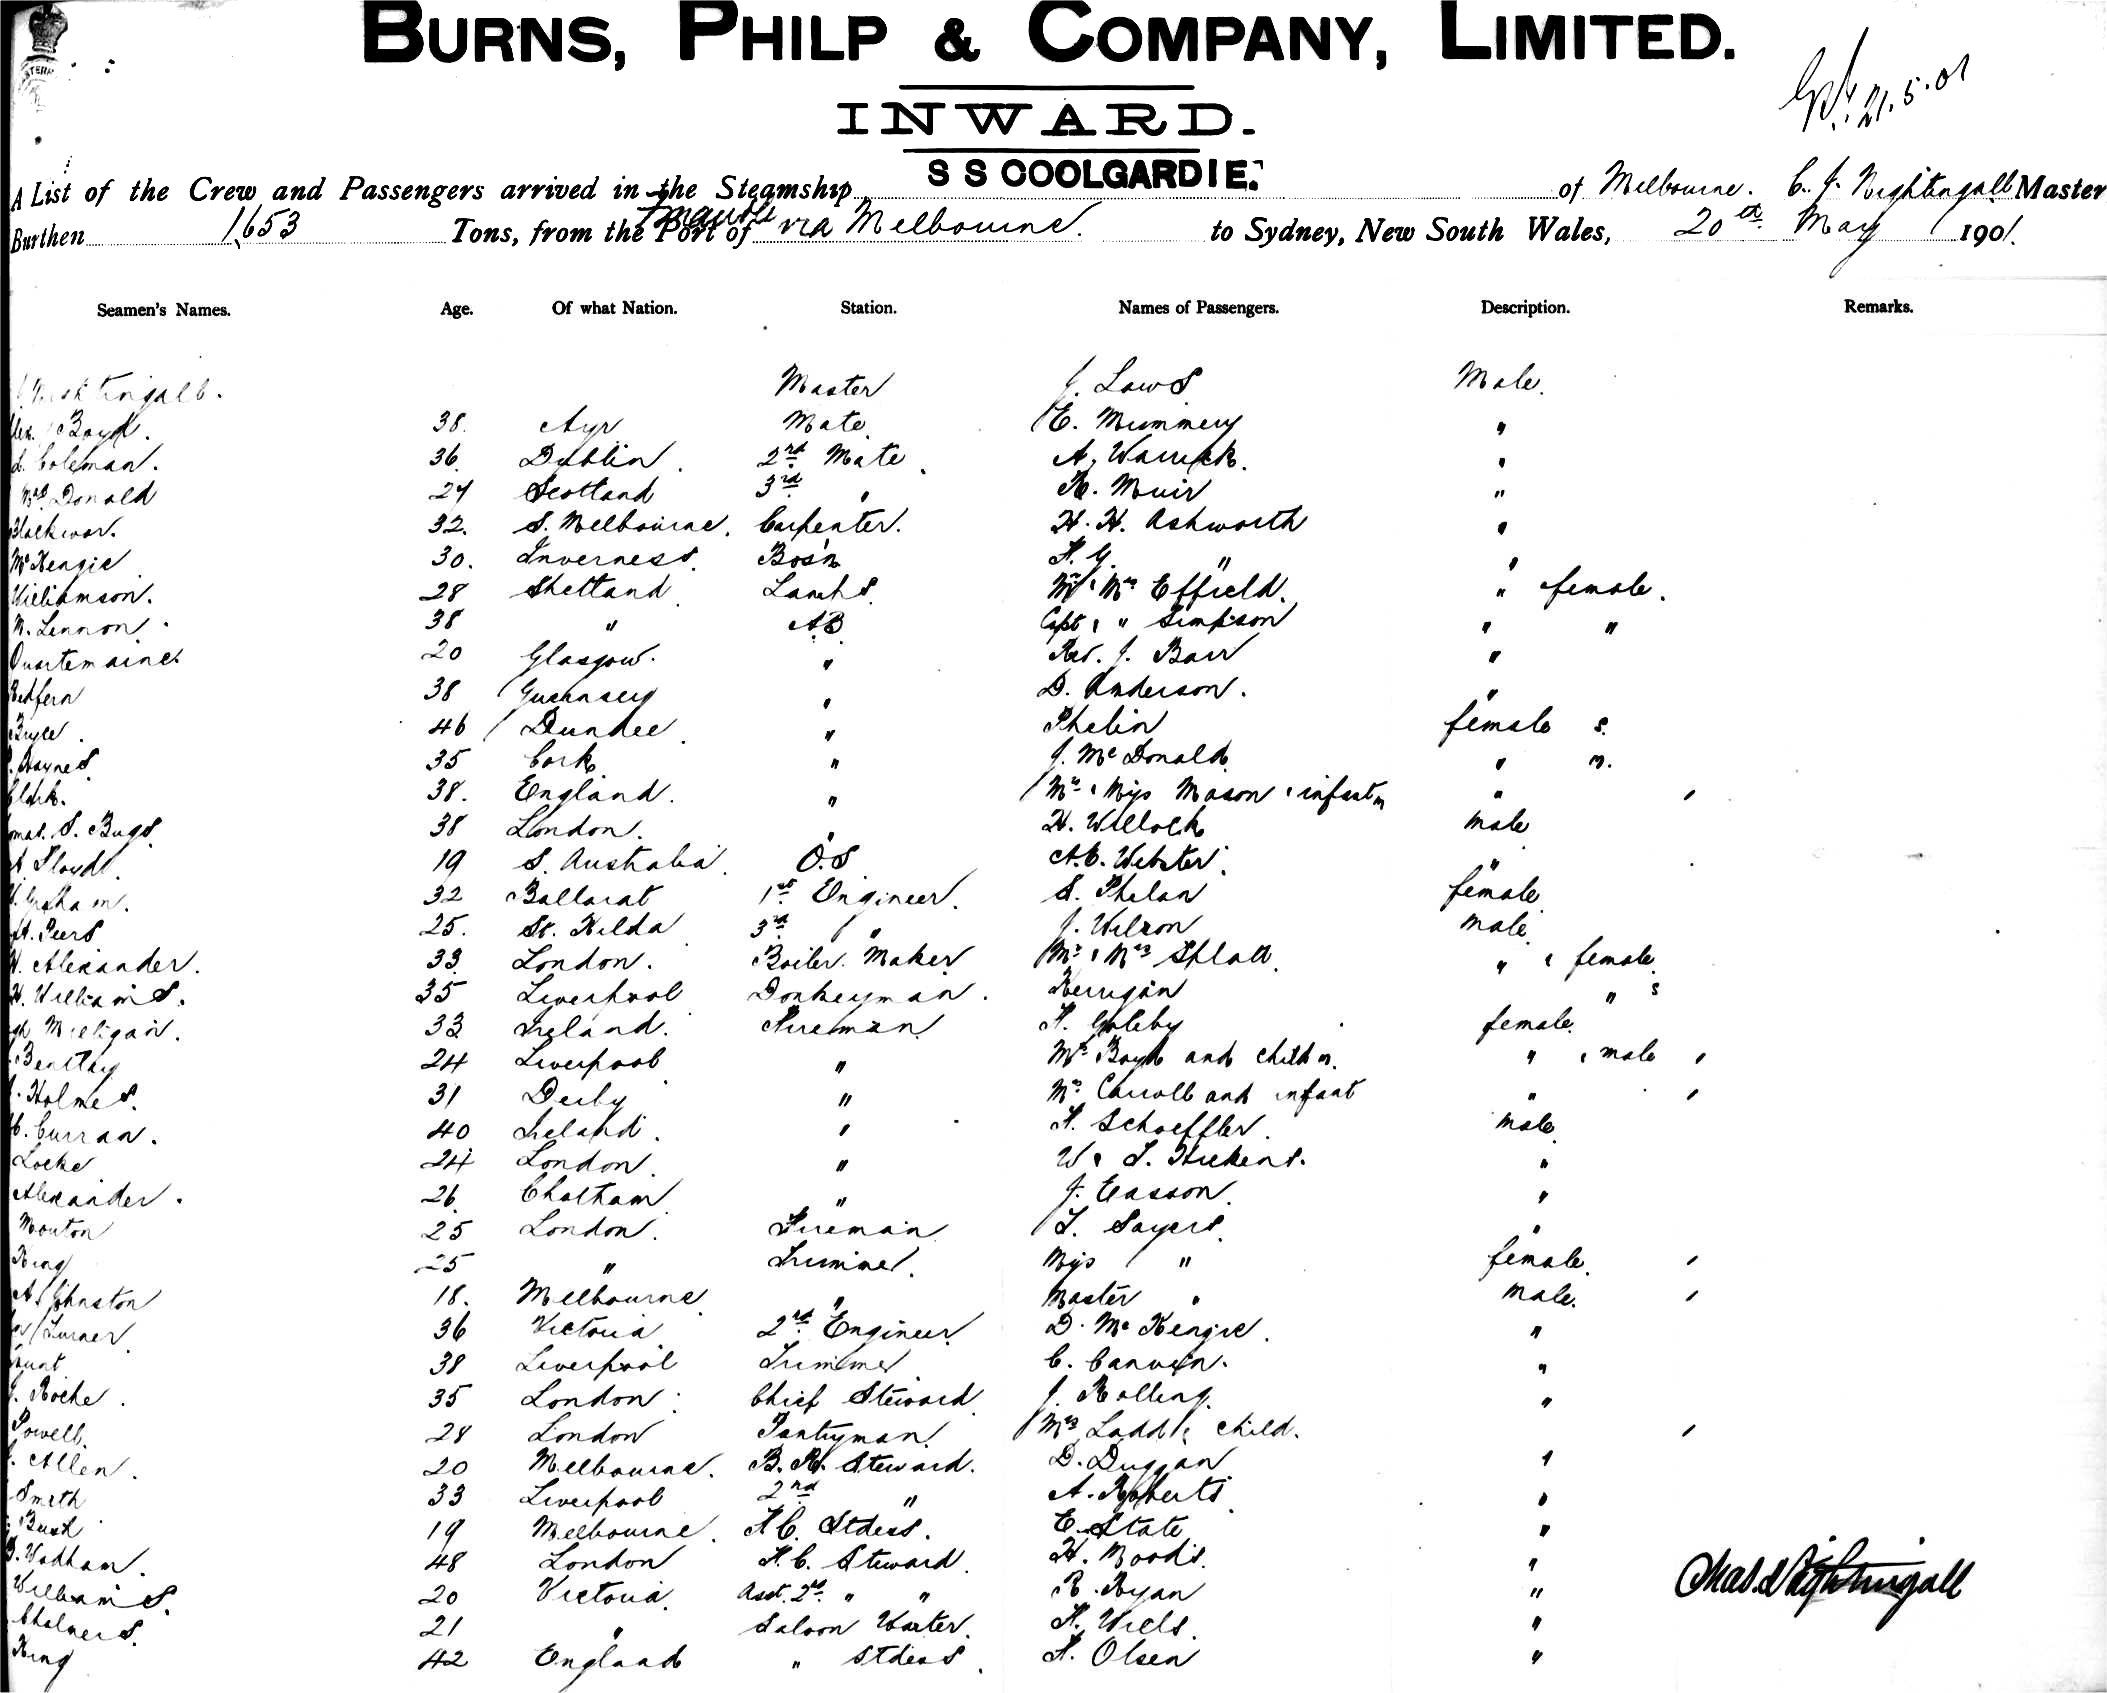 BURNS, PHILP & COMPANY, LIMITED.
21.5.01
INWARD.
S S COOLGARDIE.
A List of the Crew and Passengers arrived in the Steamship of Melbourne. C. J. Nightingall Master
Burthen 1653 Tons, from the Port of via Melbourne. to Sydney, New South Wales, 20th May 1901.
Seamen's Names. Age. Of what Nation. Station. Names of Passengers. Description. Remarks.
Nightingall. Master J. Laws Male.
Boyd. 38. Ayr Mate E. Mummery "
Coleman. 36. Dublin. 2nd Mate. A. Warrick. "
McDonald 27 Scotland 3rd " R. Muir "
32. S. Melbourne. Carpenter. H. H. Ashworth "
McKenzie 30. Inverness. Bos'n F. G. " "
Williamson. 28 Shetland Lamps. Mr & Mrs Effield. " female.
Lennon. 38 " AB Capt & " Simpson " "
Quartemaine 20 Glasgow. " Rev. J. Barr "
Redfern 38 Guernsey " D. Anderson. "
46 Dundee. " Phelin female s.
Haynes 35 Cork " J. McDonald " m.
Clark. 38. England. " Mrs & Miss Mason & infant m "
S. Bugs. 38 London. " H. Willock male
Lloyd. 19 S. Australia. O.S A. C. Webster. "
Graham. 32 Ballarat 1st Engineer. S. Phelan female
Peers 25. St. Kilda 3rd " J. Wilson male
Alexander. 33 London. Boiler Maker Mr & Mrs Splatt " & female.
H. Williams. 35 Liverpool Donkeyman. Kerrigan " s
Milligan. 33 Ireland. Fireman F. Goleby female.
Bentley 24 Liverpool " Mrs Boyd and child m. " & male
Holmes. 31 Derby " Mrs Carroll and infant "
Curran. 40 Ireland. " F. Schoeffler. male
Locke 24 London. " W & S. Hickens. "
Alexander. 26. Chatham " J. Easson. "
Mouton 25 London. Fireman S. Sayers. "
King 25 " Trimmer. Miss " female.
A. Johnston 18. Melbourne " Master " male.
Turner 36 Victoria 2nd Engineer D. McKenzie. "
38 Liverpool Trimmer C. "
Roche. 35 London. Chief Steward J. Rolling. "
Powell. 28 London Pantryman. Mrs Ladd & child.
Allen. 20 Melbourne. B. R. Steward. D. Duggan "
Smith 33 Liverpool 2nd " A. Roberts "
19 Melbourne. F C. Stdess. E. State "
Wadham. 48 London F. C. Steward. H. Woods. "
Williams. 20 Victoria. Asst. 2nd " " R. Ryan "
Chalmers. 21 " Saloon Waiter. F. Wills. "
King 42 England " Stdess. F. Olsen "
Chas. J Nightingall